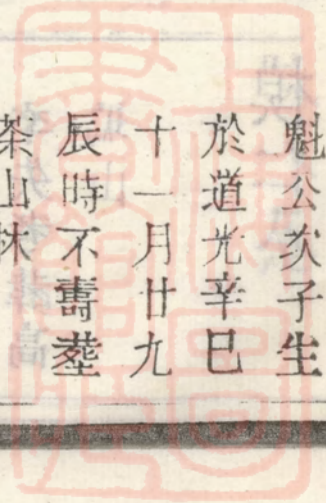 魁公次子生
於道光辛巳
十一月廿九
辰時不壽塟
茶山林